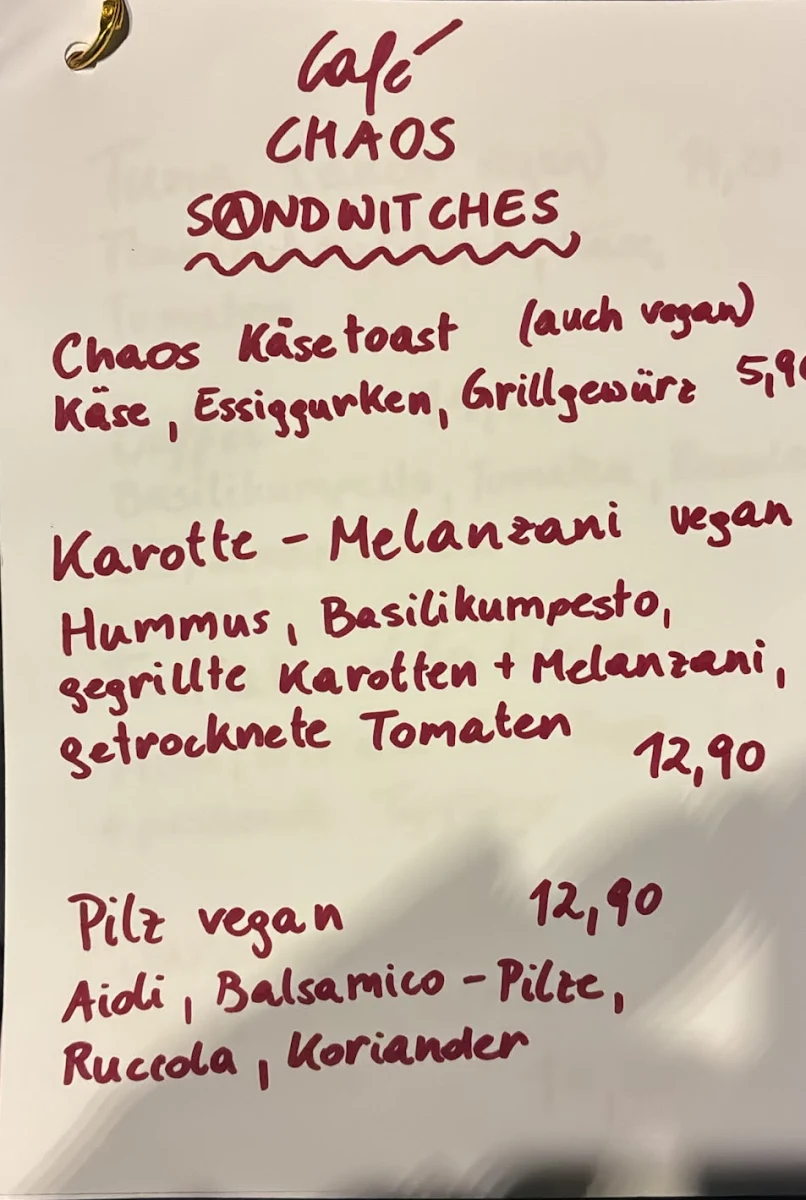 Café
CHAOS
SANDWITCHES
Chaos Käsetoast (auch vegan)
Käse, Essiggurken, Grillgewürz 5,90
Karotte - Melanzani vegan
Hummus, Basilikumpesto,
gegrillte Karotten + Melanzani,
getrocknete Tomaten
12,90
Pilz vegan 12,90
Aioli, Balsamico - Pilze,
Ruccola, Koriander